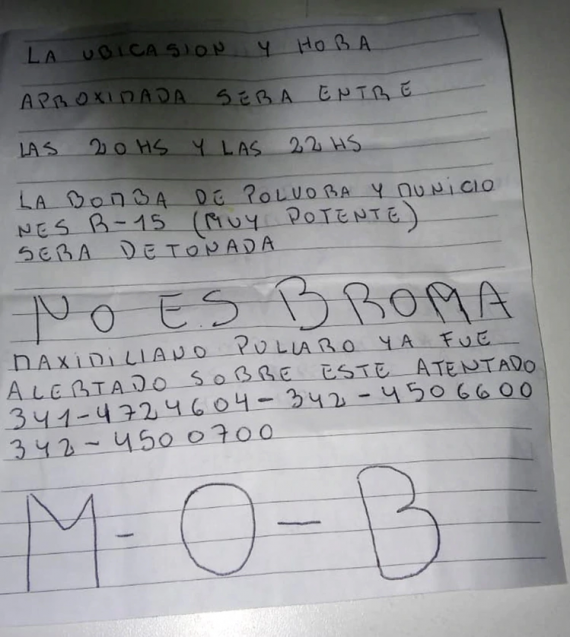 LA UBICASION Y HORA
APROXIMADA SERA ENTRE
LAS 20HS Y LAS 22HS
LA BOMBA DE POLVORA Y MUNICIO
NES R-15 (MUY POTENTE)
SERA DETONADA
NO ES BROMA
MAXIMILIANO PULLARO YA FUE
ALERTADO SOBRE ESTE ATENTADO
341-4724604-342-4506600
342-4500700
M-O-B